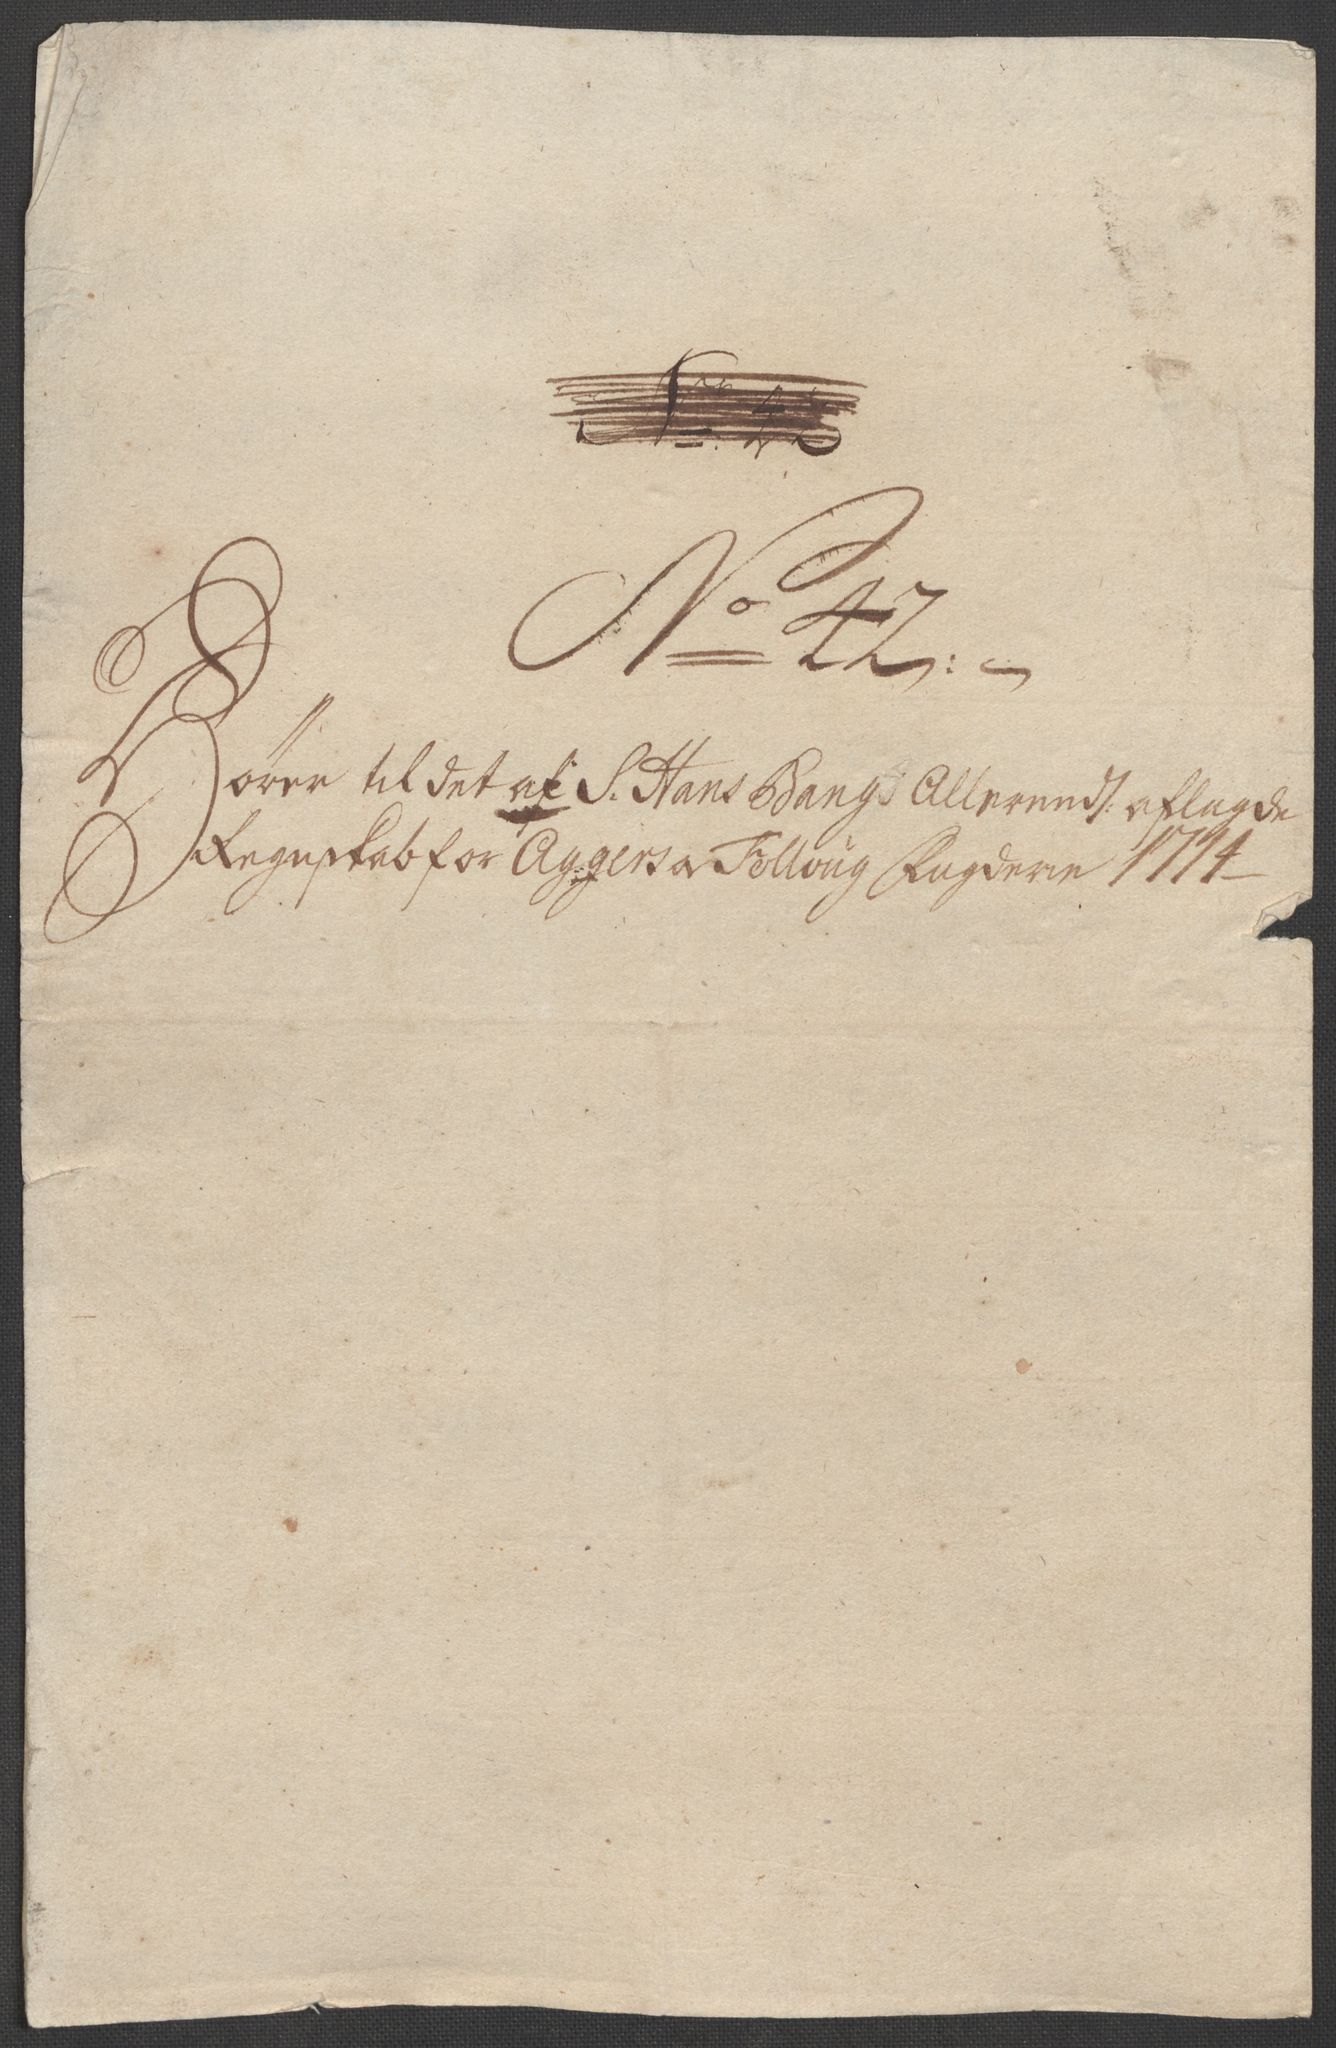 No 42:
Hörer til det af S. Hans Bang Allerunds: aflagde
Regnskab for Aggers og Folloug Fogderie 1714